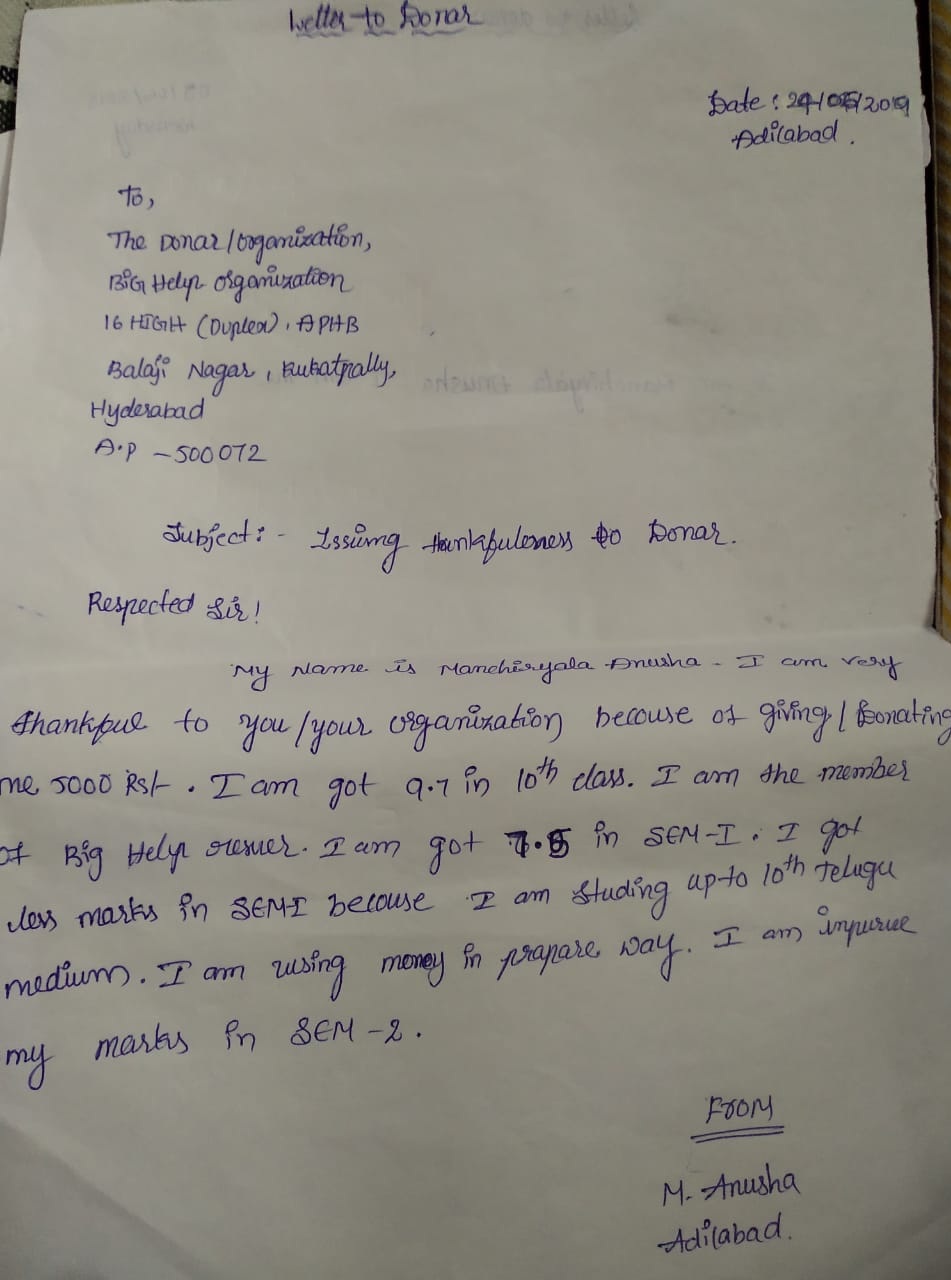 Letter to Donar
Date : 29/05/2019
Adilabad.
To,
The Donar/organization,
BiG Help organization
16 HIGH (Duplex), APHB
Balaji Nagar, Kukatpally,
Hyderabad
A.P - 500072
Subject:- Issuing thankfuleness to Donar.
Respected Sir!
My Name is Manchiryala Anusha. I am very
thankful to you/your organization becouse of giving/Donating
me 5000 Rs/-. I am got 9.7 in 10th class. I am the member
of Big Help . I am got 7.5 in SEM-I. I got
less marks in SEM-I becouse I am studing upto 10th Telugu
medium. I am using money in prapare way. I am impurue
my marks in SEM-2.
FROM
M. Anusha
Adilabad.